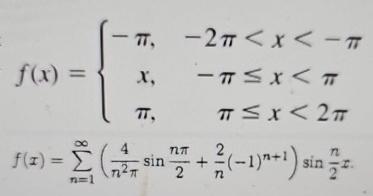 f(x) = { -π, -2π < x < -π
x, -π ≤ x < π
π, π ≤ x < 2π
f(x) = ∑_{n=1}^{∞} (4/(n²π) sin nπ/2 + 2/n (-1)^{n+1}) sin n/2 x.